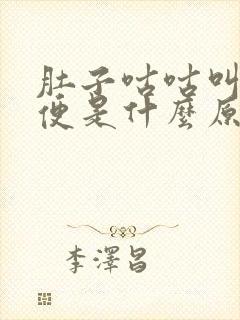 肚子咕咕叫
便是什麼原
李澤昌